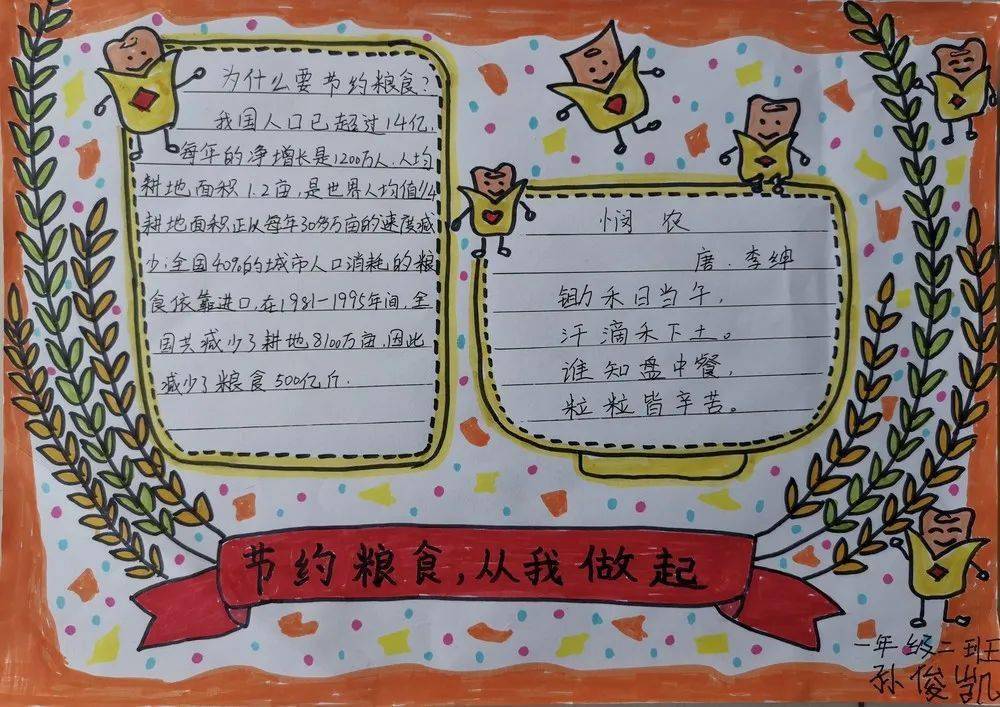 为什么要节约粮食？
我国人口已超过14亿，
每年的净增长是1200万人，人均
耕地面积1.2亩，是世界人均值1/4
耕地面积正从每年30多万亩的速度减
少；全国40%的城市人口消耗的粮
食依靠进口，在1981-1995年间，全
国共减少了耕地8100万亩，因此
减少了粮食500亿斤．
悯农
唐．李绅
锄禾日当午，
汗滴禾下土。
谁知盘中餐，
粒粒皆辛苦。
节约粮食，从我做起
一年级二班
孙俊凯